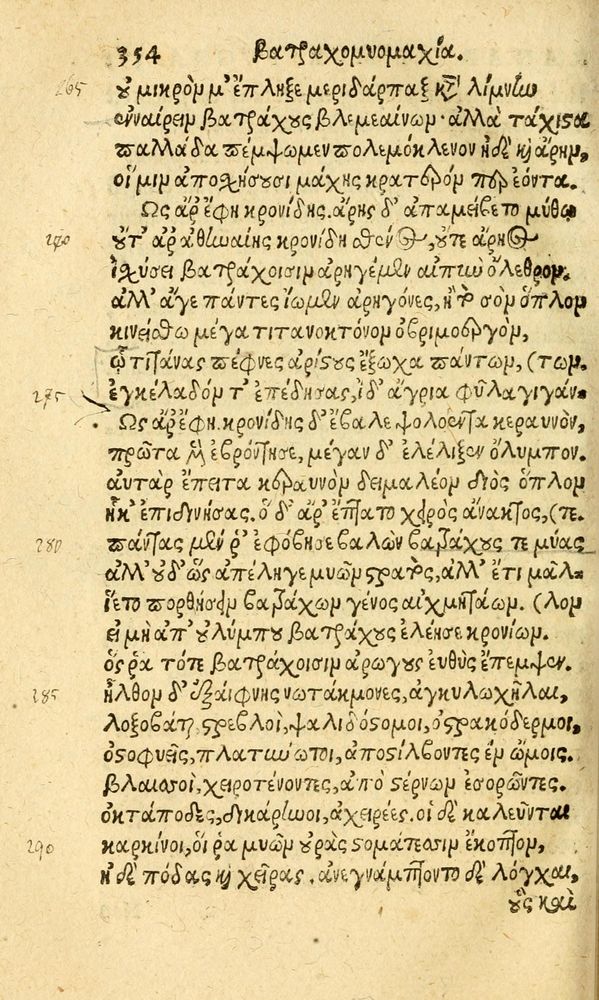 354 βατραχομυομαχία.
265 οὐ μικρόν μ' ἔπληξε μεριδάρπαξ κατὰ λίμνην
ἐναίρειν βατράχους βλεμεαίνων· ἀλλὰ τάχιστα
παλλάδα πέμψωμεν πολεμόκλονον ἠδὲ καὶ ἄρην,
οἵ μιν ἀποσχήσουσι μάχης κρατερόν περ ἐόντα.
Ὣς ἄρ' ἔφη κρονίδης. ἄρης δ' ἀπαμείβετο μύθῳ
270 οὔτ' ἄρ' ἀθηναίης κρονίδη σθένος, οὔτε ἄρηος
ἰσχύσει βατράχοισιν ἀρηγέμεν αἰπὺν ὄλεθρον.
ἀλλ' ἄγε πάντες ἴωμεν ἀρηγόνες, ἢ τὸ σὸν ὅπλον
κινείσθω μέγα τιτανοκτόνον ὀβριμοεργόν,
ᾧ τιτᾶνας πέφνες ἀρίστους ἔξοχα πάντων, (των.
275 ἐγκέλαδόν τ' ἐπέδησας, ἰδ' ἄγρια φῦλα γιγάν-
Ὣς ἄρ' ἔφη. κρονίδης δ' ἔβαλε ψολόεντα κεραυνὸν,
πρῶτα μὲν ἐβρόντησε, μέγαν δ' ἐλέλιξεν ὄλυμπον.
αὐτὰρ ἔπειτα κεραυνὸν δειμαλέον διὸς ὅπλον
ἧκ' ἐπιδινήσας. ὁ δ' ἄρ' ἔπτατο χειρὸς ἄνακτος, (τε.
280 πάντας μέν ῥ' ἐφόβησε βαλὼν βατράχους τε μύας
ἀλλ' οὐδ' ὣς ἀπέληγε μυῶν στρατὸς, ἀλλ' ἔτι μᾶλ-
ἵετο πορθήσειν βατράχων γένος αἰχμητάων. (λον
εἰ μὴ ἀπ' οὐλύμπου βατράχους ἐλέησε κρονίων.
ὅς ῥα τότε βατράχοισιν ἀρωγοὺς εὐθὺς ἔπεμψεν.
285 ἦλθον δ' ἐξαίφνης νωτάκμονες, ἀγκυλοχῆλαι,
λοξοβάται, στρεβλοὶ, ψαλιδόστομοι, ὀστρακόδερμοι,
ὀστοφυεῖς, πλατύνωτοι, ἀποστίλβοντες ἐν ὤμοις.
βλαισοὶ, χειροτένοντες, ἀπὸ στέρνων ἐσορῶντες.
ὀκτάποδες, δικάρηνοι, ἀχειρέες. οἱ δὲ καλεῦνται
290 καρκίνοι, οἵ ῥα μυῶν οὐρὰς στομάτεσσιν ἔκοπτον,
ἠδὲ πόδας καὶ χεῖρας. ἀνεγνάμπτοντο δὲ λόγχαι,
οὓς καὶ